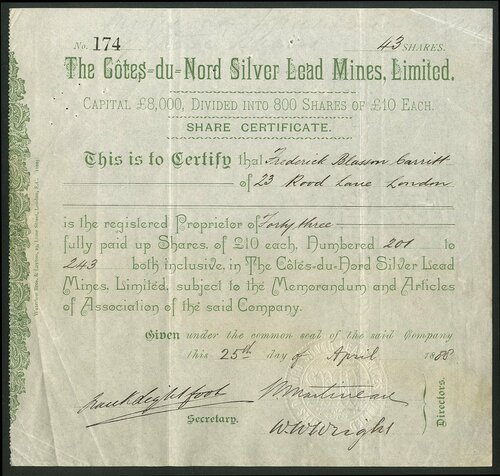 No. 174 43 SHARES.
The Côtes-du-Nord Silver Lead Mines, Limited.
CAPITAL £8,000, DIVIDED INTO 800 SHARES OF £10 EACH.
SHARE CERTIFICATE.
This is to Certify that Frederick Blasson Carritt
of 23 Rood Lane London
is the registered Proprietor of Forty three
fully paid up Shares, of £10 each, Numbered 201 to
243 both inclusive, in The Côtes-du-Nord Silver Lead
Mines, Limited, subject to the Memorandum and Articles
of Association of the said Company.
Given under the common seal of the said Company
this 25th day of April 1888
Martineau
Secretary.
W W Wright
Directors.